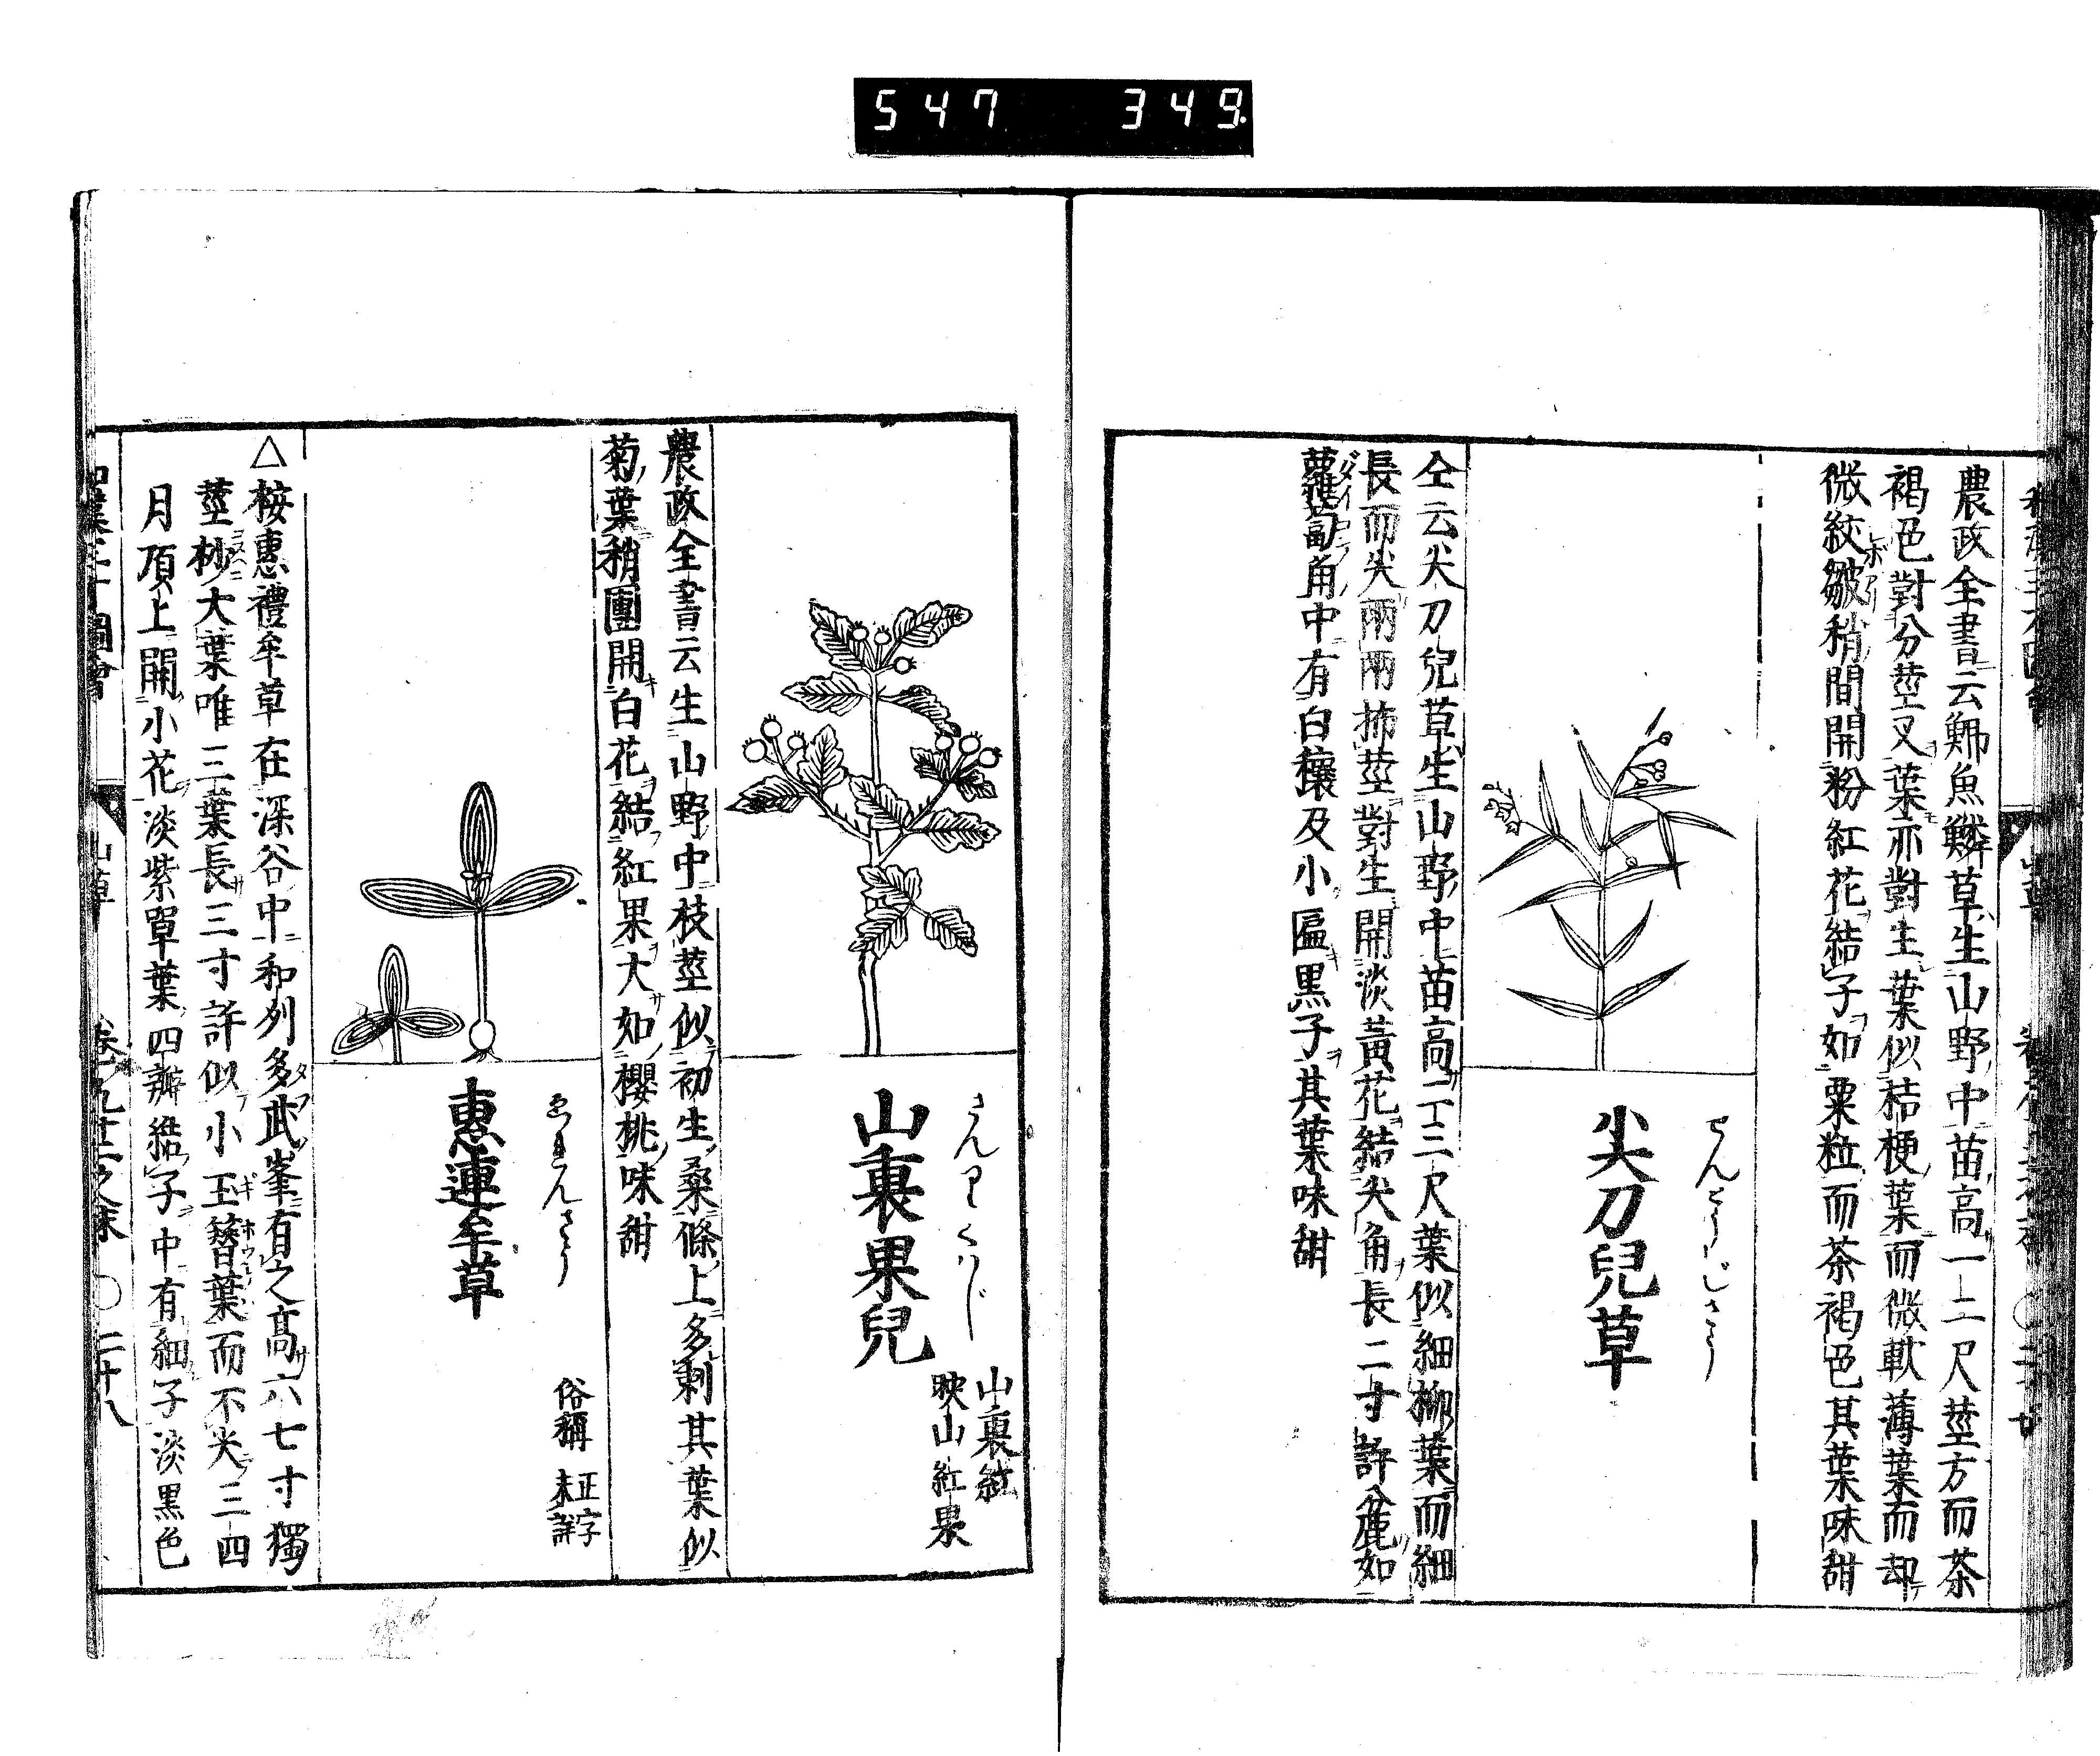 547 349
農政全書云鯽魚鱗草生山野中苗高一二尺莖方而茶
褐色對分莖叉葉亦對生葉似桔梗葉而微軟薄葉而却
微紋皺稍間開粉紅花結子如粟粒而茶褐色其葉味甜
せんとうじさう
尖刀兒草
仝云尖刀兒草生山野中苗高二三尺葉似細柳葉而細
長而尖兩兩抪莖對生開淡黃花結尖角長二寸許麄如
蘿蔔角中有白穰及小匾黒子其葉味甜
さんりくはじ
山裏果兒
山裏紅
映山紅果
農政全書云生山野中枝莖似初生桑條上多刺其葉似
菊葉稍團開白花結紅果大如櫻桃味甜
ゑれんさう
惠連牟草
俗稱
正字
未詳
△桉惠禮牟草在深谷中和列多武峯有之高六七寸獨
莖杪大葉唯三葉長三寸許似小玉簪葉而不尖三四
月頂上開小花淡紫單葉四瓣結子中有細子淡黒色
山草
卷九十二之末
〇二十八